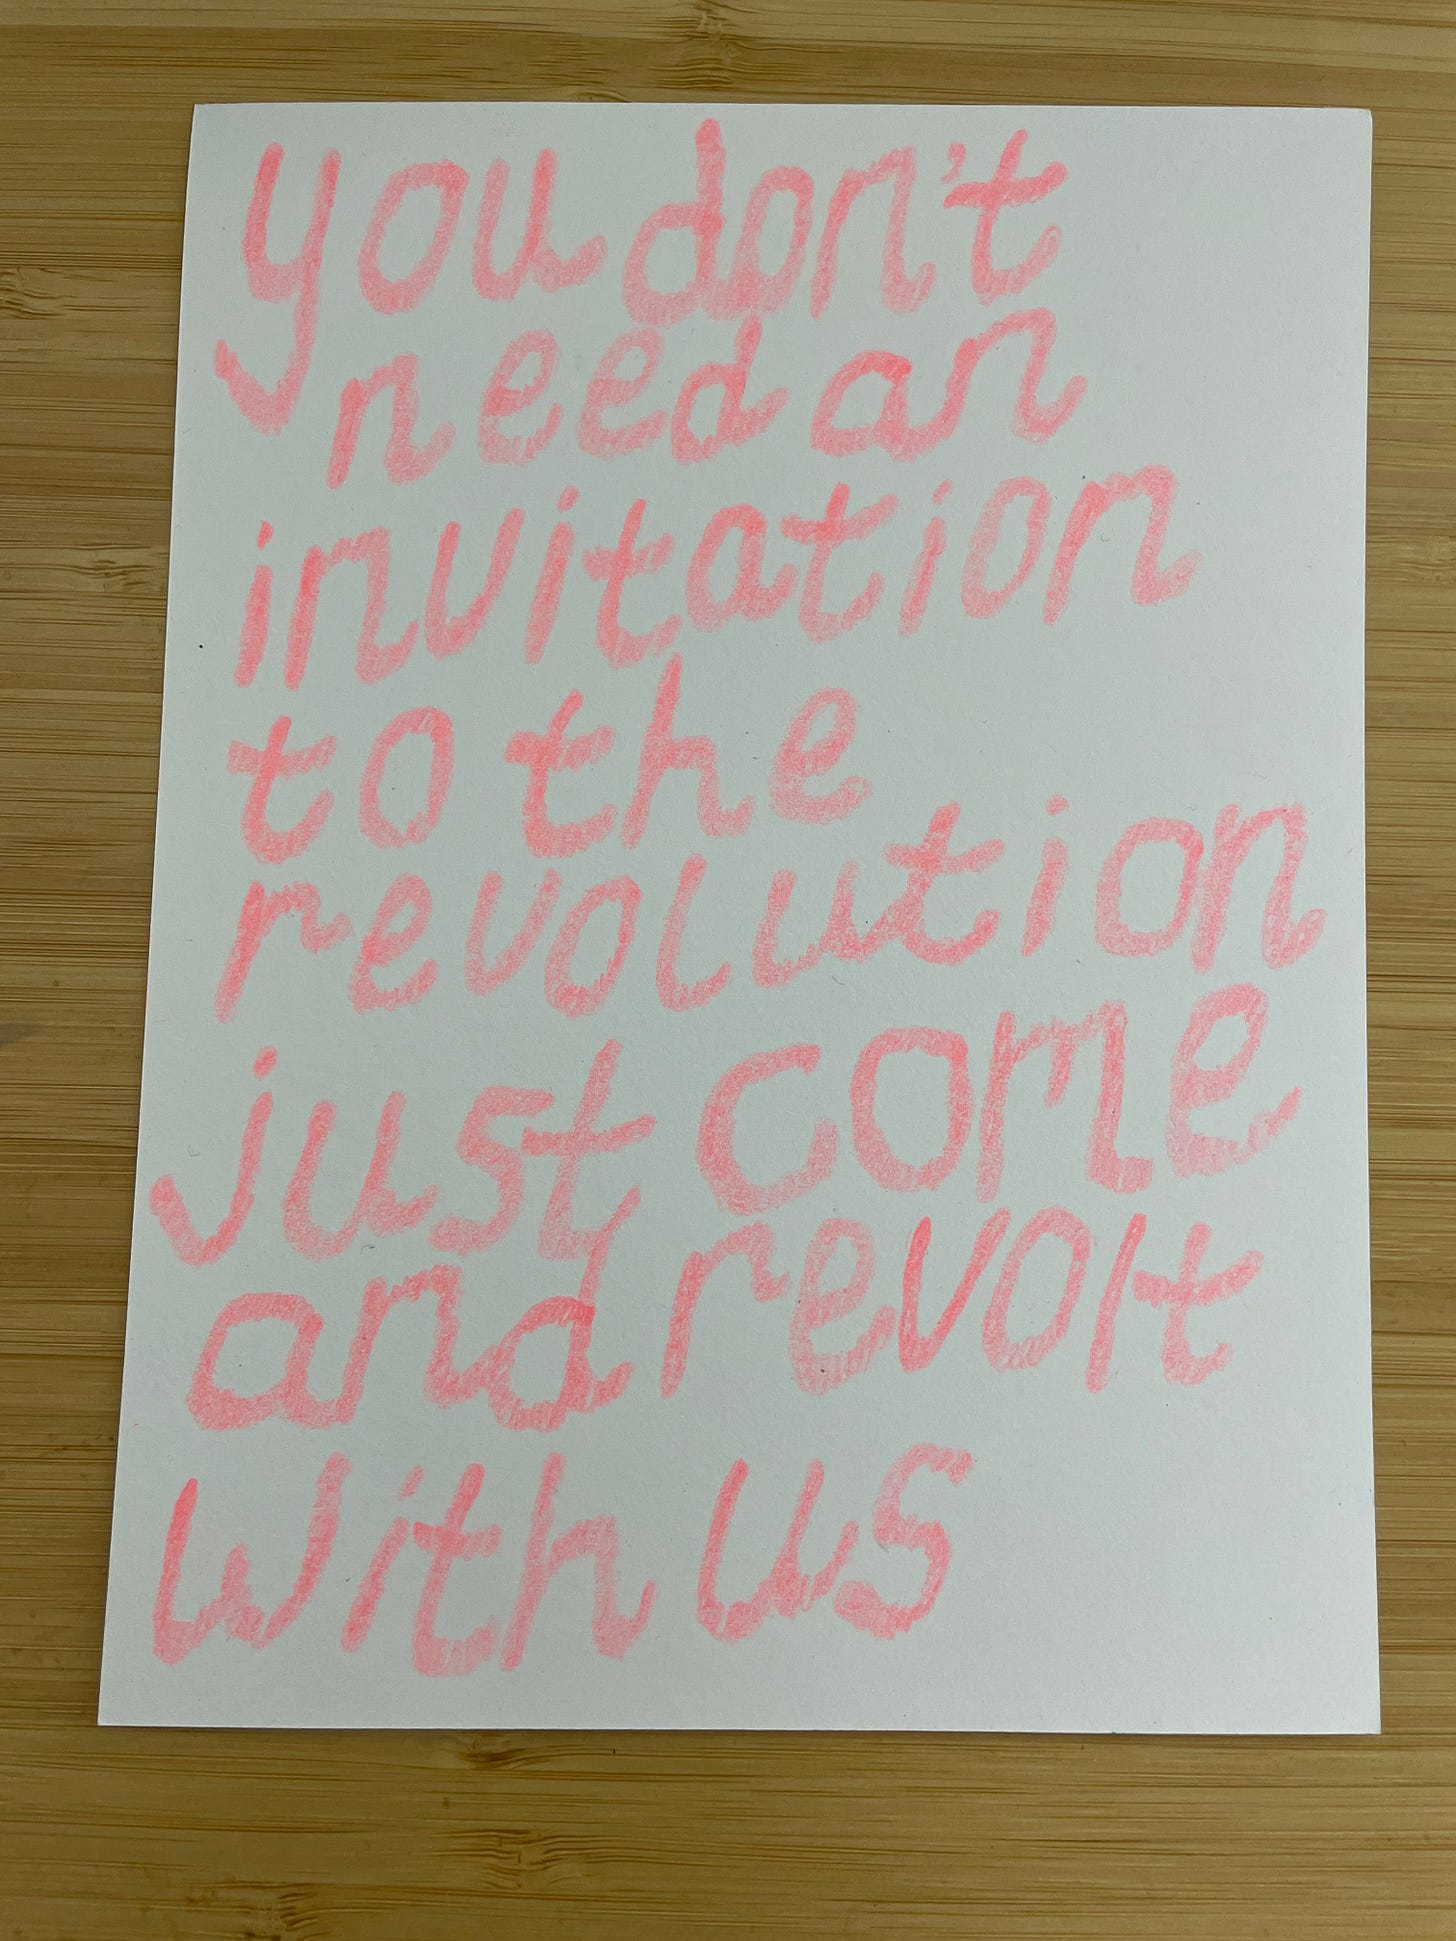 you don't
need an
invitation
to the
revolution
just come
and revolt
with us